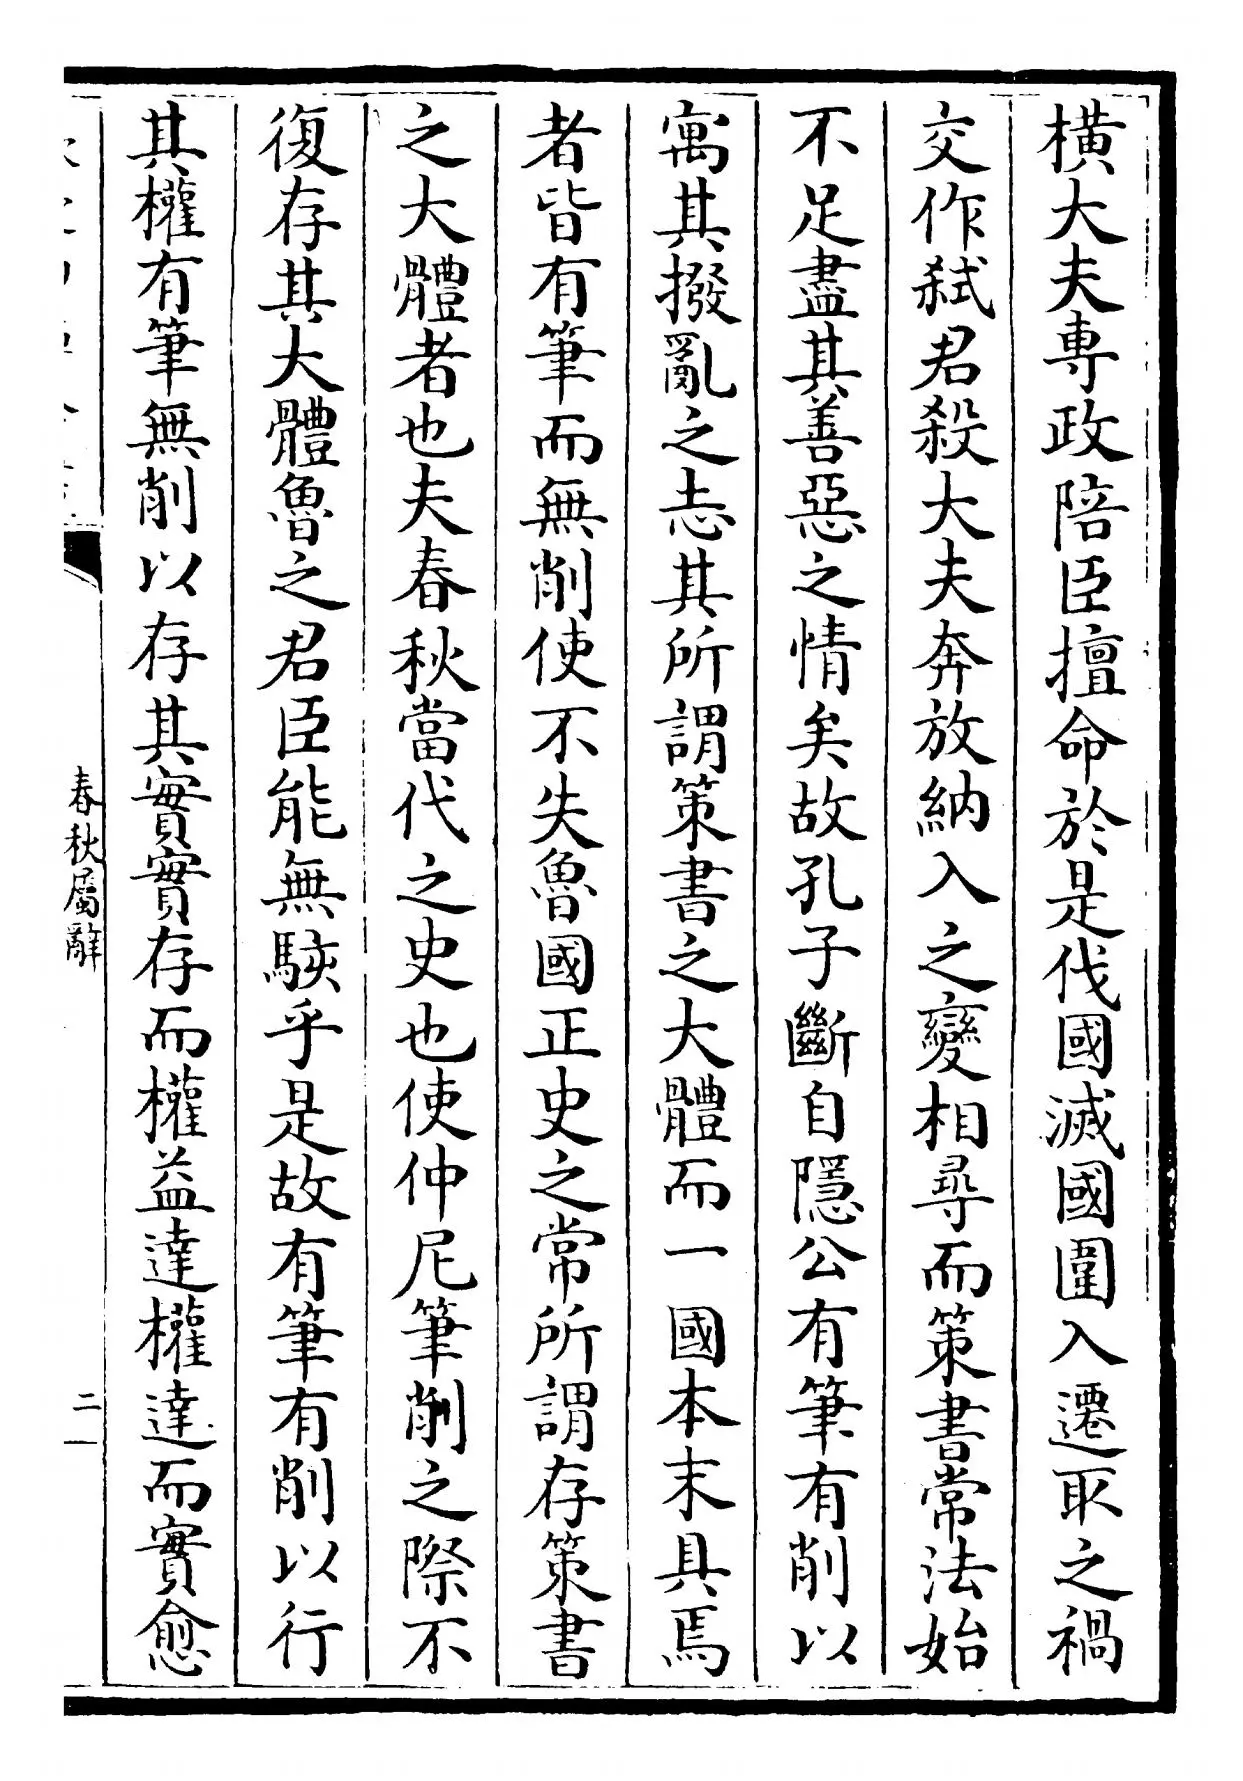 橫大夫專政陪臣擅命於是伐國滅國圍入遷取之禍
交作弑君殺大夫奔放納入之變相尋而策書常法始
不足盡其善惡之情矣故孔子斷自隱公有筆有削以
寓其撥亂之志其所謂策書之大體而一國本末具焉
者皆有筆而無削使不失魯國正史之常所謂存策書
之大體者也夫春秋當代之史也使仲尼筆削之際不
復存其大體魯之君臣能無駭乎是故有筆有削以行
其權有筆無削以存其實實存而權益達權達而實愈
春秋屬辭
二